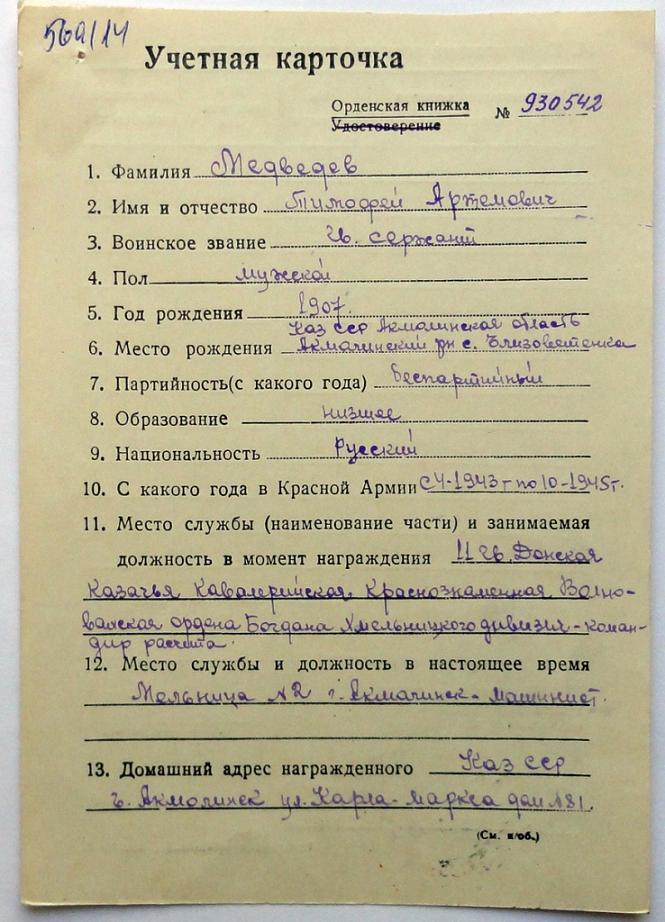 569/14
Учетная карточка
Орденская книжка
Удостоверение
№ 930542
1. Фамилия Медведев
2. Имя и отчество Тимофей Артемович
3. Воинское звание Гв. сержант
4. Пол мужской
5. Год рождения 1907.
Каз сср Акмолинская область
6. Место рождения Акмолинский рн с. Елизоветенка
7. Партийность(с какого года) беспартийный
8. Образование низшее
9. Национальность Русский
10. С какого года в Красной Армии с 4-1943 г по 10-1945 г.
11. Место службы (наименование части) и занимаемая
должность в момент награждения 11 гв. Донская
Казачья Кавалерийская Краснознаменная Волно-
вахская ордена Богдана Хмельницкого дивизия - коман-
дир расчета.
12. Место службы и должность в настоящее время
Мельница №2 г. Акмолинск - машинист.
13. Домашний адрес награжденного Каз сср
г. Акмолинск ул. Карла-Маркса дом №81.
(См. н/об.)